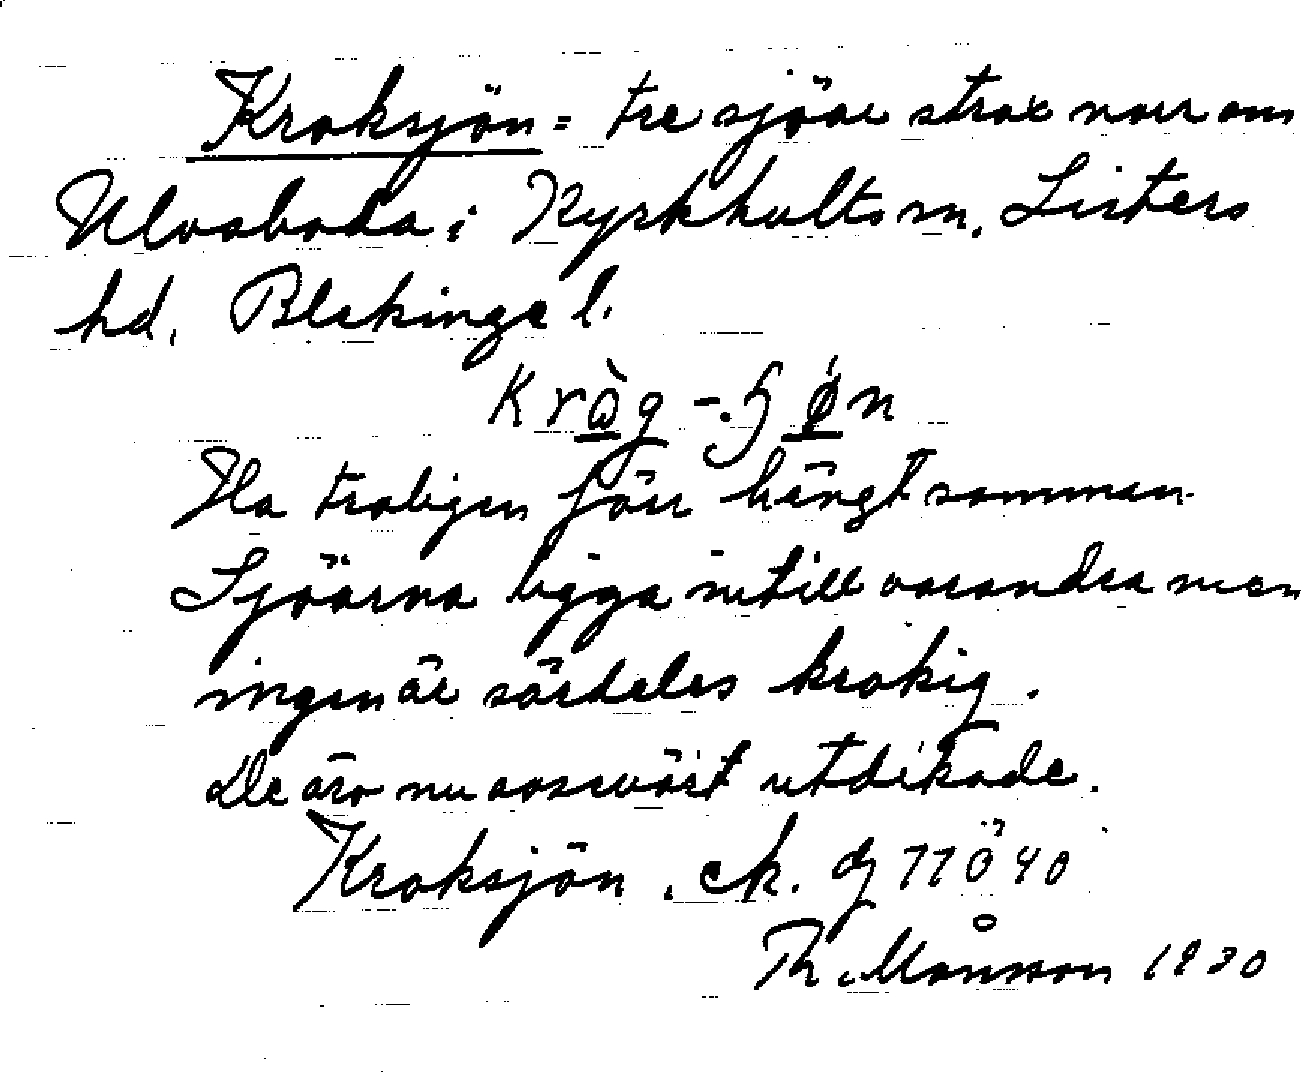 Kroksjön = tre sjöar strax norr om
Ulvaboda i Kyrkhults sn. Listers
hd. Blekinge l.
Ha troligen förr hängt samman
Sjöarna ligga intill varandra men
ingen är särdeles krokig.
De äro nu oerhört utdikade.
Kroksjön. ek. 77 Ö 40
Th. Månsson 1930